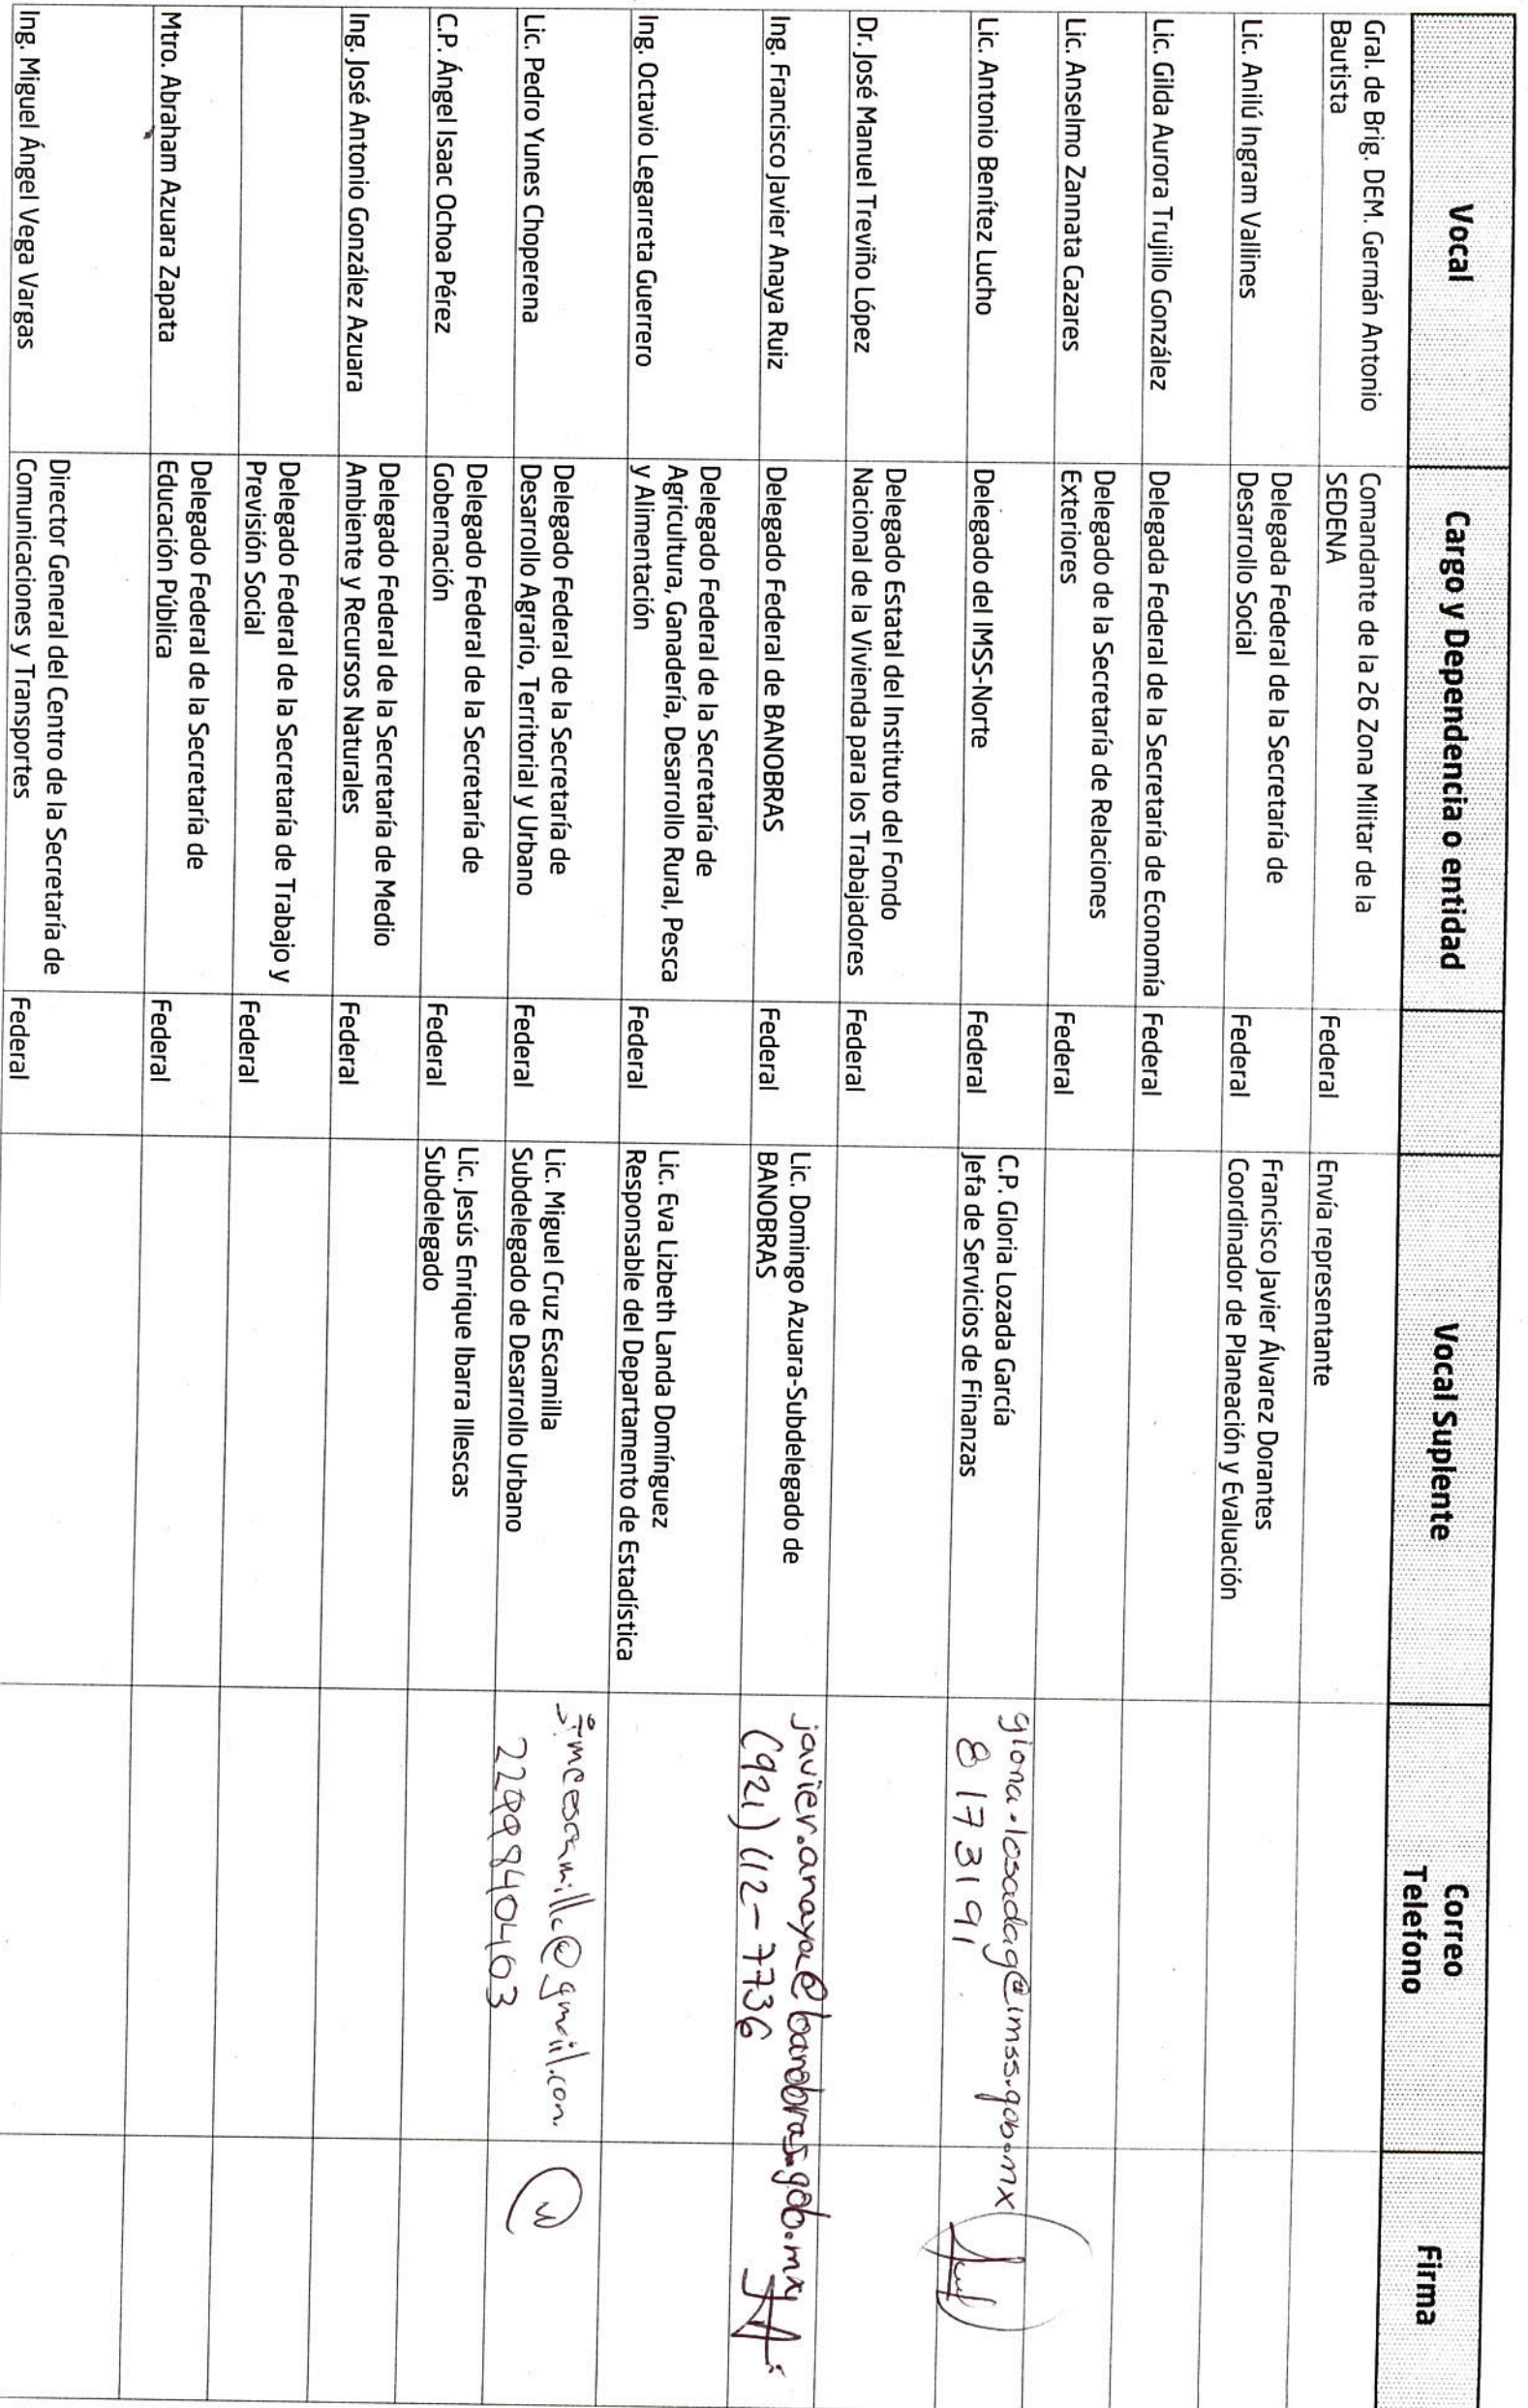 Vocal
Cargo y Dependencia o entidad
Vocal Suplente
Correo
Telefono
Firma
Gral. de Brig. DEM. Germán Antonio
Bautista
Comandante de la 26 Zona Militar de la
SEDENA
Federal
Envía representante
Lic. Anilú Ingram Vallines
Delegada Federal de la Secretaría de
Desarrollo Social
Federal
Francisco Javier Álvarez Dorantes
Coordinador de Planeación y Evaluación
Lic. Gilda Aurora Trujillo González
Delegada Federal de la Secretaría de Economía
Federal
Lic. Anselmo Zannata Cazares
Delegado de la Secretaría de Relaciones
Exteriores
Federal
Lic. Antonio Benítez Lucho
Delegado del IMSS-Norte
Federal
C.P. Gloria Lozada García
Jefa de Servicios de Finanzas
gloria.losadag@imss.gob.mx
8 173191
Dr. José Manuel Treviño López
Delegado Estatal del Instituto del Fondo
Nacional de la Vivienda para los Trabajadores
Federal
Ing. Francisco Javier Anaya Ruiz
Delegado Federal de BANOBRAS
Federal
Lic. Domingo Azuara-Subdelegado de
BANOBRAS
javier.anaya@banobras.gob.mx
(921) 112-7736
Ing. Octavio Legarreta Guerrero
Delegado Federal de la Secretaría de
Agricultura, Ganadería, Desarrollo Rural, Pesca
y Alimentación
Federal
Lic. Eva Lizbeth Landa Domínguez
Responsable del Departamento de Estadística
Lic. Pedro Yunes Choperena
Delegado Federal de la Secretaría de
Desarrollo Agrario, Territorial y Urbano
Federal
Lic. Miguel Cruz Escamilla
Subdelegado de Desarrollo Urbano
C.P. Ángel Isaac Ochoa Pérez
Delegado Federal de la Secretaría de
Gobernación
Federal
Lic. Jesús Enrique Ibarra Illescas
Subdelegado
Ing. José Antonio González Azuara
Delegado Federal de la Secretaría de Medio
Ambiente y Recursos Naturales
Federal
Delegado Federal de la Secretaría de Trabajo y
Previsión Social
Federal
Mtro. Abraham Azuara Zapata
Delegado Federal de la Secretaría de
Educación Pública
Federal
Ing. Miguel Ángel Vega Vargas
Director General del Centro de la Secretaría de
Comunicaciones y Transportes
Federal